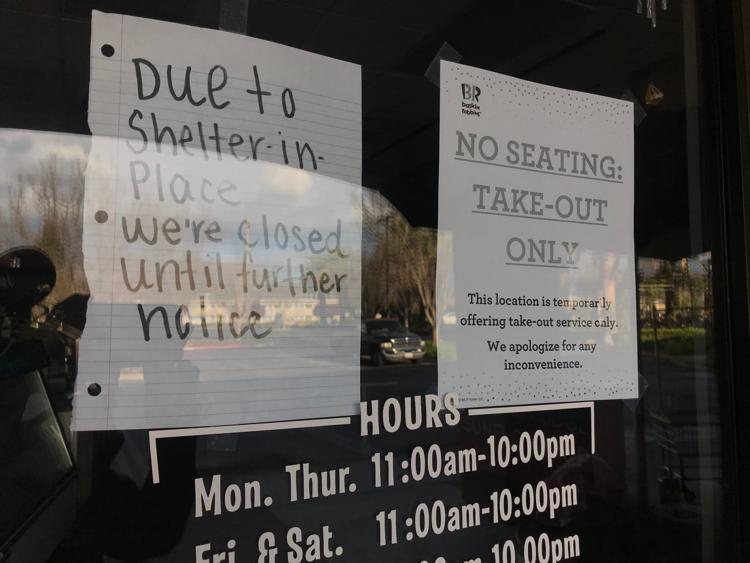 Due to
Shelter-in-
Place
we're closed
until further
notice
BR
baskin
robbins
NO SEATING:
TAKE-OUT
ONLY
This location is temporarily
offering take-out service only.
We apologize for any
inconvenience.
HOURS
Mon. Thur. 11:00am-10:00pm
Fri. & Sat. 11:00am-10:00pm
10:00pm